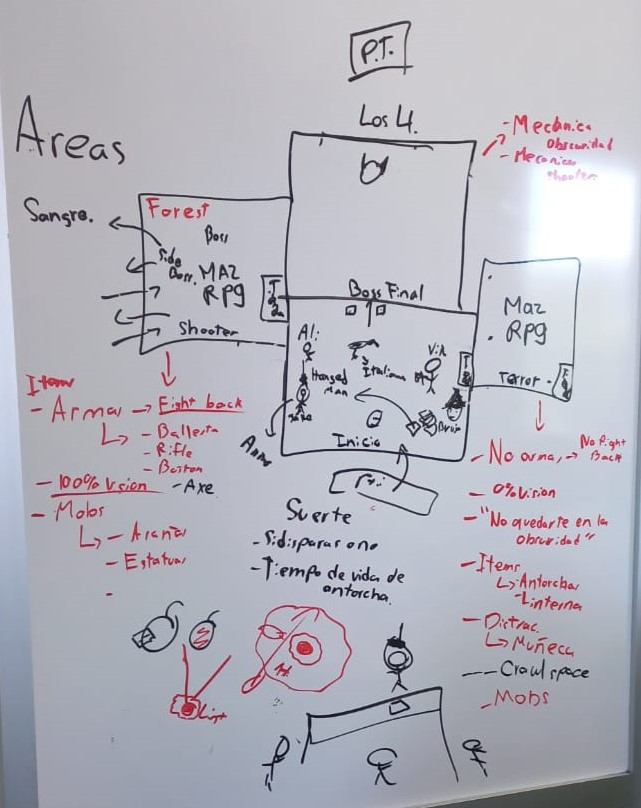 P.T.
Los 4.
Areas
- Mechanica
Obscuridad
- Mecanica
shooter
Sangre.
Forest
Boss
Side
Boss.
MAZ
RPG
Shooter
Boss Final
Maz
RPG
Terror
Ali
Italiano
Hanged
Man
Bruja
Inicio
Item
- Armas → Fight back
- Ballesta
- Rifle
- Baston
- Axe
- 100% Vision
- Mobs
- Arañas
- Estatuas
-
Suerte
- Si disparas o no
- Tiempo de vida de
antorcha.
- No arma, → No Fight
Back
- 0% Vision
- "No quedarte en la
obscuridad"
- Items
Antorchas
- Linterna
- Distrac.
Muñeca
- Crawl space
- Mobs
Light